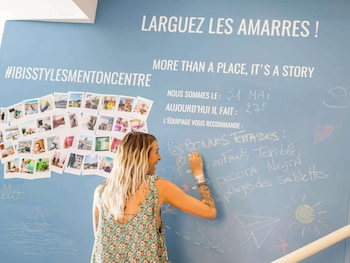 LARGUEZ LES AMARRES !
#IBISSTYLESMENTONCENTRE
MORE THAN A PLACE, IT'S A STORY
NOUS SOMMES LE : 31 Mai
AUJOURD'HUI IL FAIT : 27°
L'ÉQUIPAGE VOUS RECOMMANDE
BONNES TERRASSES :
enfants Terrible
Negra
plage des sablettes